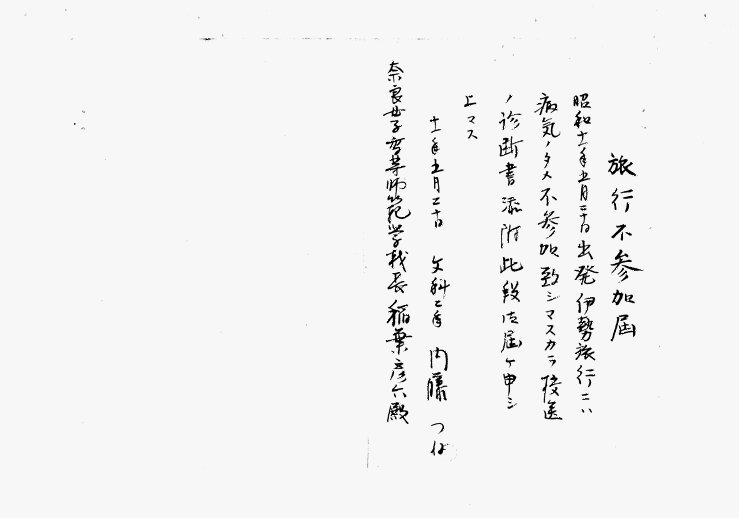 旅行不参加届
昭和十一年五月二十日出発伊勢旅行ニハ
病気ノタメ不参加致シマスカラ校医
ノ診断書添附此段御届ケ申シ
上マス
十一年五月二十日 文科二年 内藤 つね
奈良女子高等師範学校長稲葉彦六殿